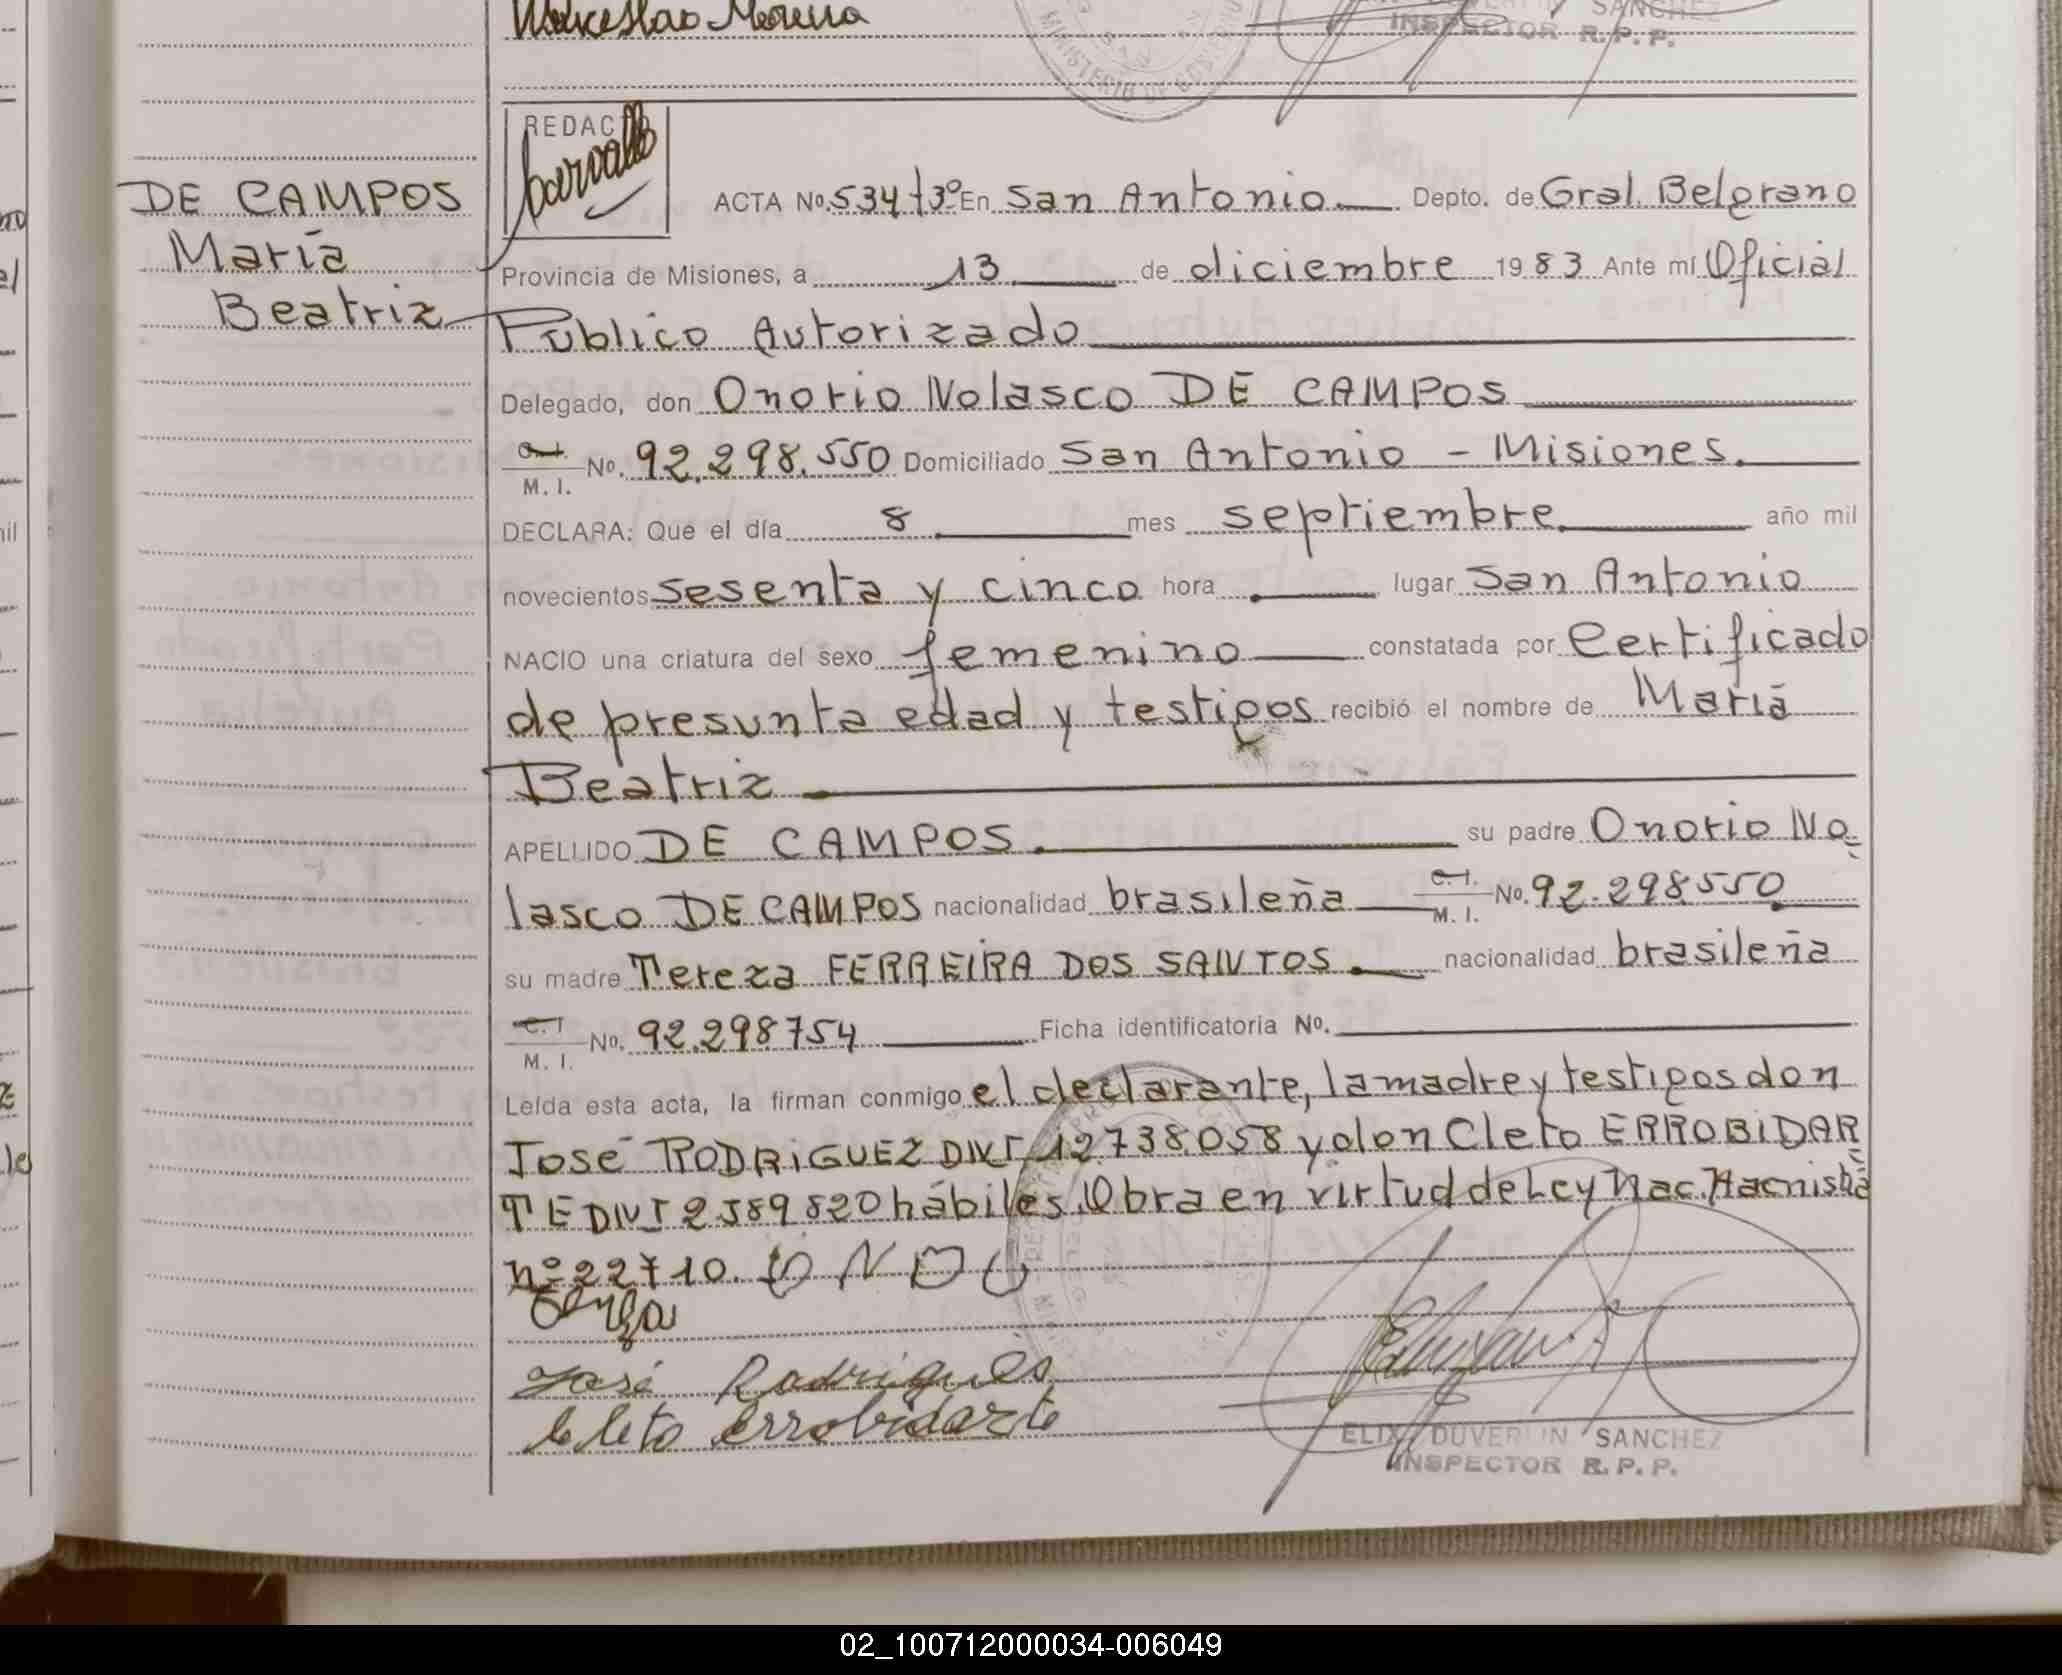 Wenceslao Moreira
SANCHEZ
INSPECTOR R.P.P.
MINISTERIO DE GOBIERNO
REDAC
Carvallo
DE CAMPOS
María
Beatriz
ACTA No. 534 t3º En San Antonio Depto. de Gral. Belgrano
Provincia de Misiones, a 13 de diciembre 1983 Ante mí Oficial
Público Autorizado
Delegado, don Onorio Nolasco DE CAMPOS
C.I. M.I. No. 92.298.550 Domiciliado San Antonio - Misiones.
DECLARA: Que el día 8 mes septiembre año mil
novecientos sesenta y cinco hora lugar San Antonio
NACIO una criatura del sexo femenino constatada por Certificado
de presunta edad y testigos recibió el nombre de María
Beatriz
APELLIDO DE CAMPOS. su padre Onorio No
lasco DE CAMPOS nacionalidad brasileña C.I. M.I. No. 92.298.550
su madre Tereza FERREIRA DOS SANTOS. nacionalidad brasileña
C.I. M.I. No. 92.298754 Ficha identificatoria No.
Leída esta acta, la firman conmigo el declarante, la madre y testigos don
José RODRIGUEZ DNI 12.738.058 y don Cleto ERROBIDAR
TE DNI 2589820 hábiles. Obra en virtud de Ley Nac.
nº 22710.
José Rodrigues
Cleto Errobidarte
DUVERLIN SANCHEZ
INSPECTOR R.P.P.
02_100712000034-006049